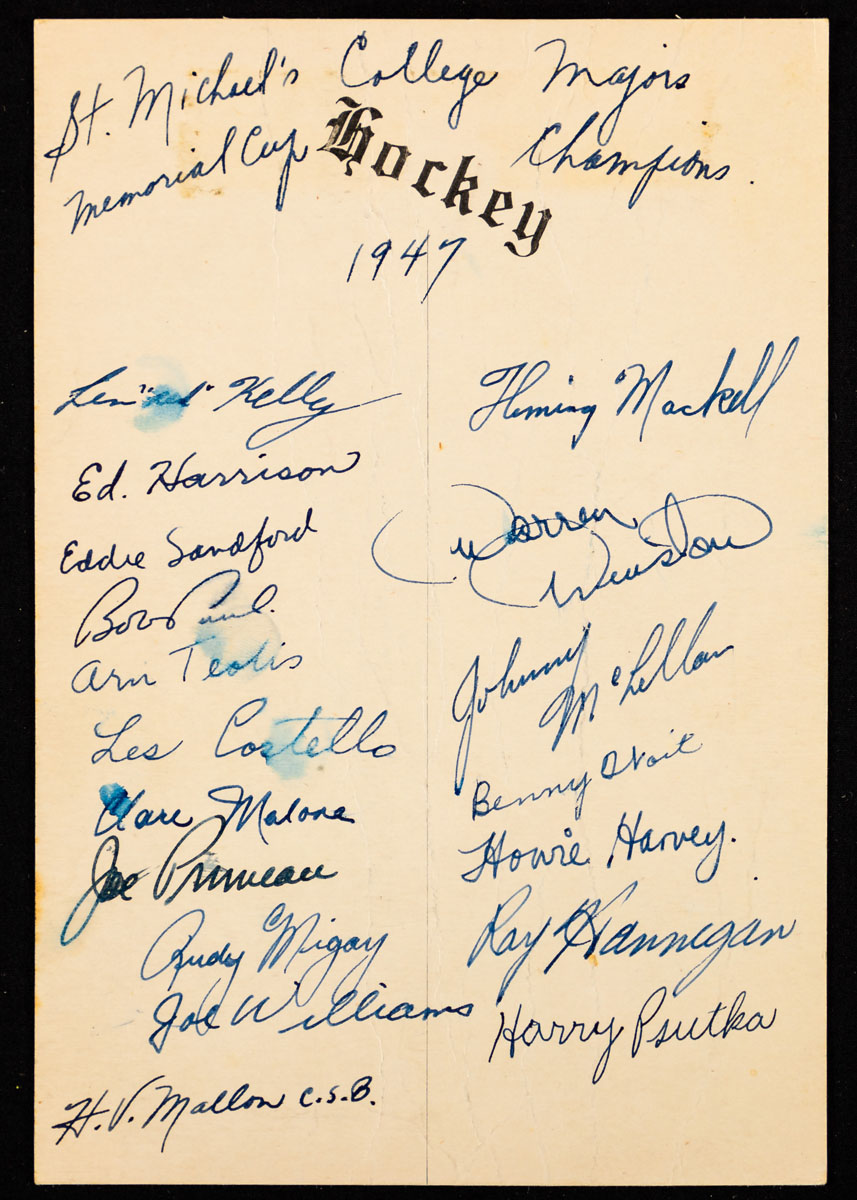 St. Michael's College Majors
Memorial Cup Hockey Champions.
1947
Len "Red" Kelly
Ed. Harrison
Eddie Sandford
Bob Paul.
Arn Teolis
Les Costello
Clare Malone
Joe Primeau
Rudy Migay
Joe Williams
H. V. Mallon C.S.B.
Fleming Mackell
Warren
Winston
Johnny
McLellan
Benny Woit
Howie Harvey.
Ray Hannegan
Harry Psutka